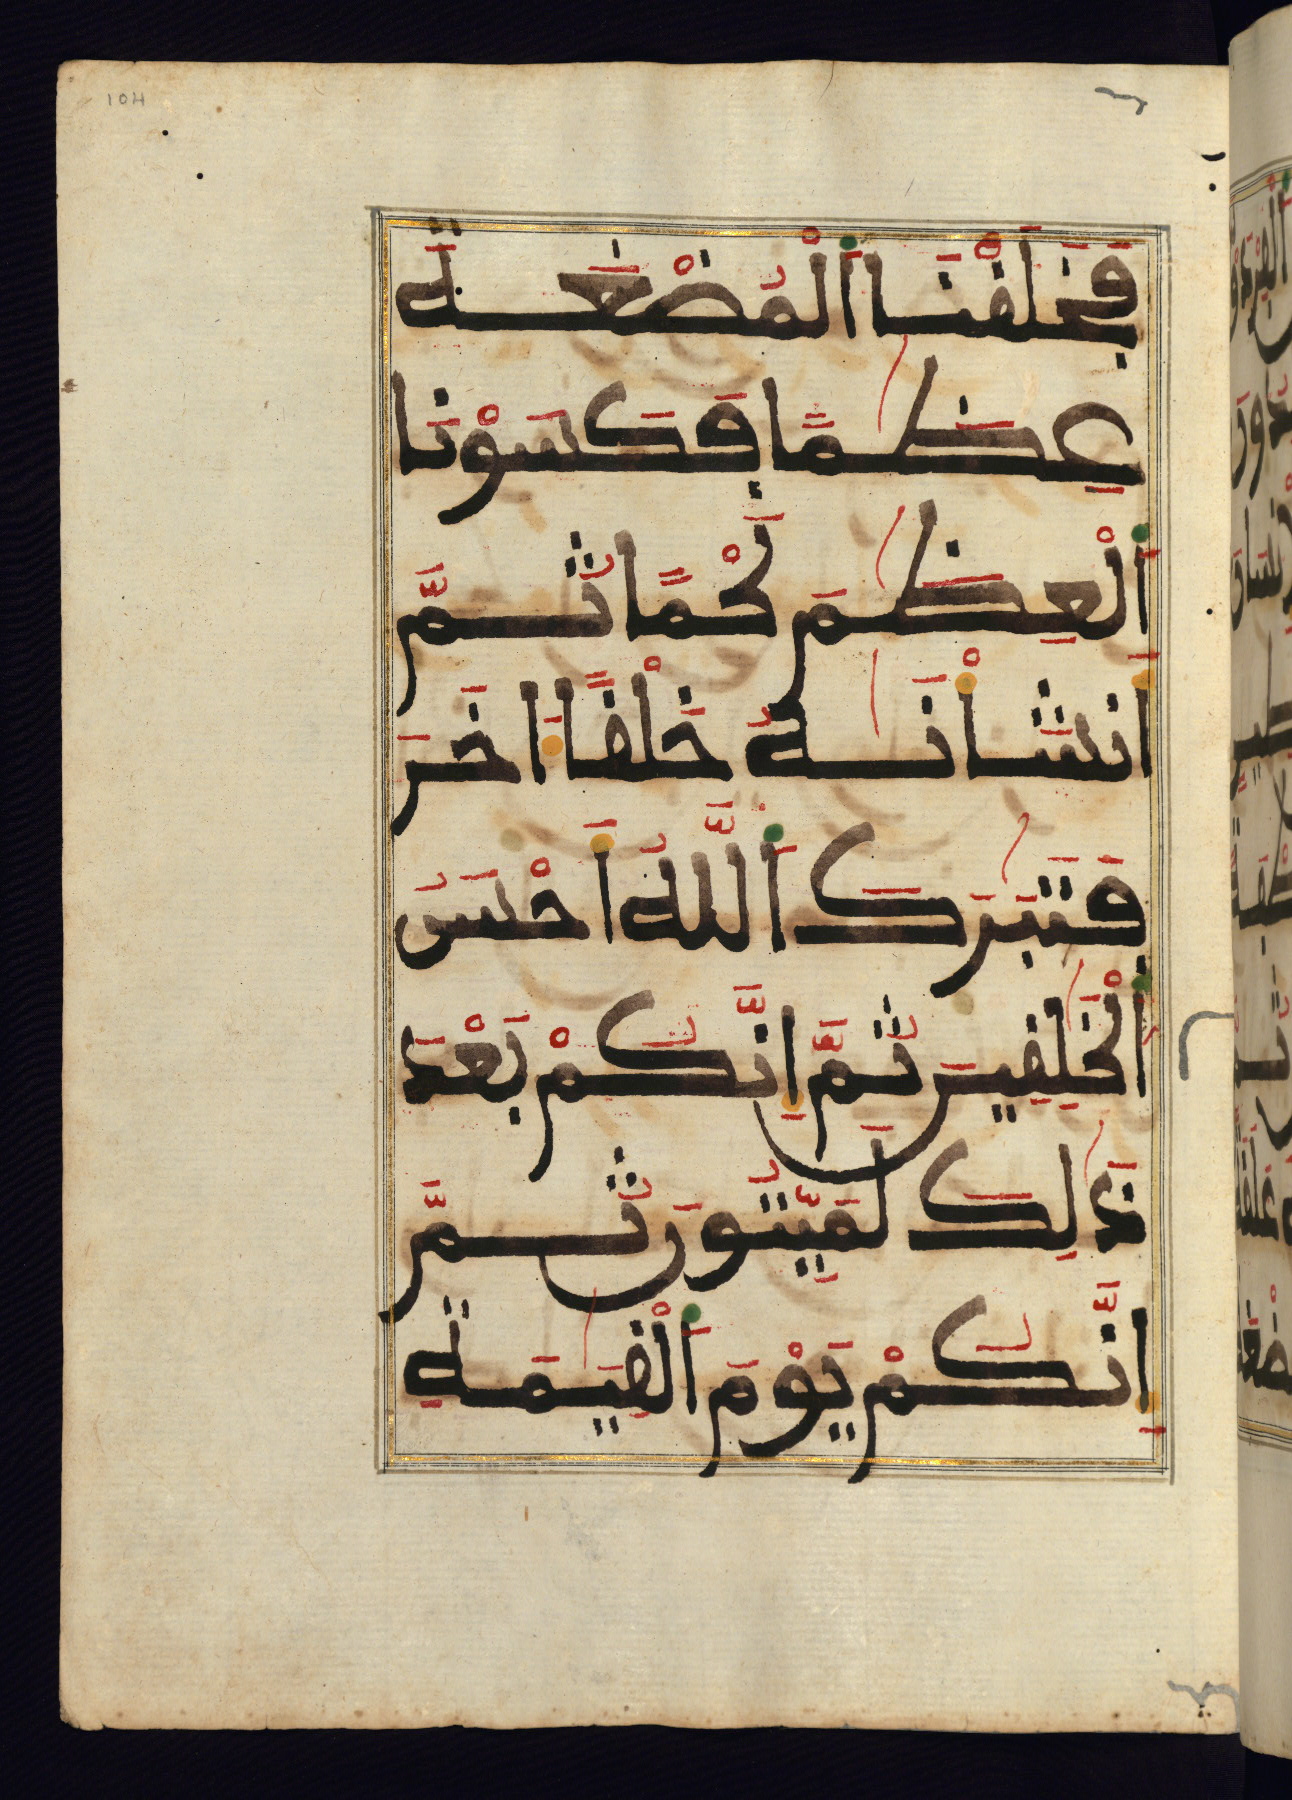 104
فَخَلَقْنَا اَلْمُضْغَةَ
عِظَٰمًا فَكَسَوْنَا
اَلْعِظَٰمَ لَحْمًا ثُمَّ
أَنشَأْنَٰهُ خَلْقًا ءَاخَرَ
فَتَبَٰرَكَ اَللَّهُ أَحْسَنُ
اَلْخَٰلِقِينَ ثُمَّ إِنَّكُمْ بَعْدَ
ذَٰلِكَ لَمَيِّتُونَ ثُمَّ
إِنَّكُمْ يَوْمَ اَلْقِيَٰمَةِ